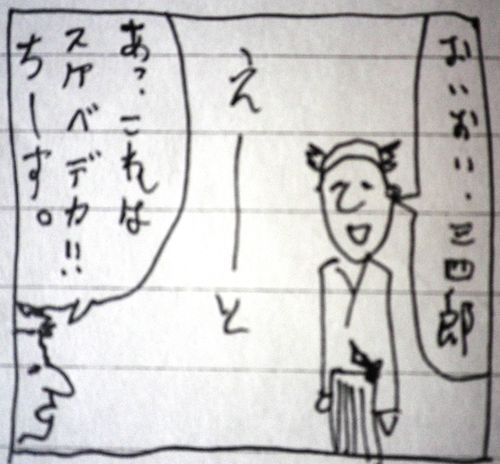 おいおい・三四郎
えーと
あっ・これは
スケベデカ!!
ちーす。